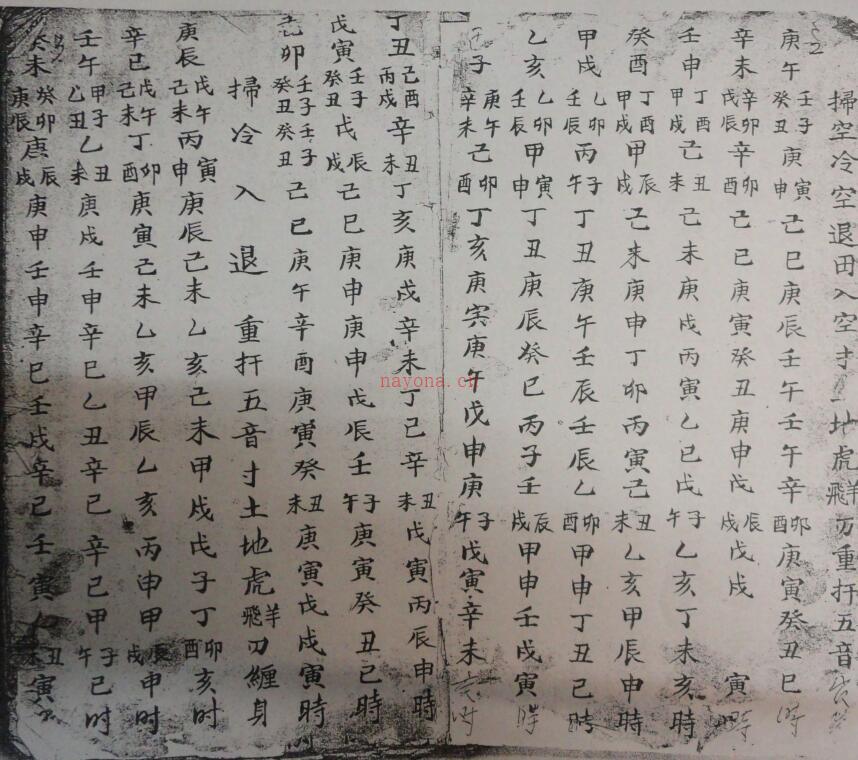 掃空冷空退田入空才一地虎飛羊方重扞五音
庚午壬子癸丑庚寅申己巳庚辰壬午壬午辛卯酉庚寅癸丑巳時
辛未辛卯戊辰辛卯酉己巳庚寅癸丑庚申戊辰戌戊戌寅時
壬申丁酉甲戌己丑未己未庚戌丙寅乙巳戊子午乙亥丁未亥時
癸酉丁酉甲戌甲辰戌己未庚申丁卯丙寅己丑未乙亥甲辰申時
甲戌乙卯壬辰丙子午丁丑庚午壬辰壬辰乙卯酉甲申丁丑巳時
乙亥乙卯壬辰甲寅申丁丑庚辰癸巳丙子壬辰戌甲申壬戌寅時
子庚午辛未己卯酉丁亥庚寅庚午戊申庚子午戊寅辛未亥时
丁丑己酉丙戌辛丑未丁亥庚戌辛未丁己辛丑未戊寅丙辰申時
戊寅壬子癸丑戊辰戌己巳庚申庚申戊辰壬子午庚寅癸丑巳時
己卯壬子壬子癸丑癸丑己巳庚午辛酉庚寅癸丑未庚寅戊戌寅時
掃冷入退重扞五音寸土地虎飛羊刃纏身
庚辰戊午己未丙寅申庚辰己未乙亥己未甲戌戊子丁卯酉亥时
辛巳戊午己未丁卯酉庚寅己未乙亥甲辰乙亥丙申甲辰戌申时
壬午甲子乙丑乙丑未庚戌壬申辛巳乙丑辛巳辛巳甲子午巳时
癸未癸卯庚辰庚辰戌庚申壬申辛巳壬戌辛巳壬寅丑未寅
nayona.cn